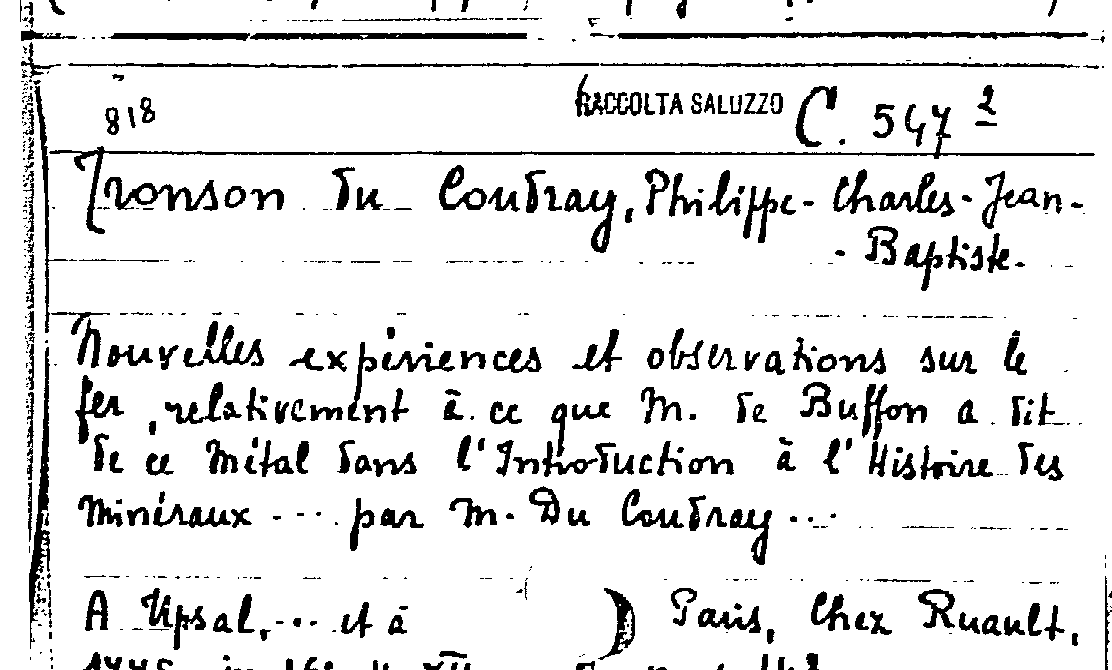 818 RACCOLTA SALUZZO C. 547 2
Tronson du Coudray, Philippe-Charles-Jean-
-Baptiste.
Nouvelles expériences et observations sur le
fer, relativement à ce que M. de Buffon a dit
de ce métal dans l'Introduction à l'Histoire des
minéraux .... par M. Du Coudray ...
A Upsal, ... et à ) Paris, Chez Ruault,